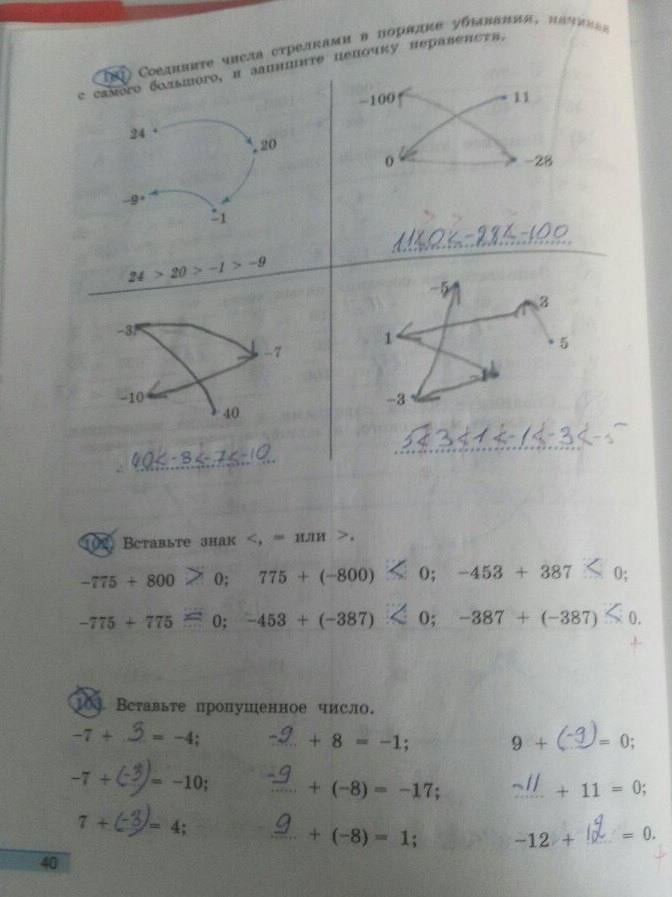 101 Соедините числа стрелками в порядке убывания, начиная
с самого большого, и запишите цепочку неравенств.
24
20
-9
-1
24 > 20 > -1 > -9
-100
11
0
-28
11<0<-28<-100
-3
-7
-10
40
40<-3<-7<-10
-5
3
1
5
-3
-1
5<3<1<-1<-3<-5
102 Вставьте знак <, = или >.
-775 + 800 > 0; 775 + (-800) < 0; -453 + 387 < 0;
-775 + 775 = 0; -453 + (-387) < 0; -387 + (-387) < 0.
+
103. Вставьте пропущенное число.
-7 + 3 = -4; -9 + 8 = -1; 9 + (-9) = 0;
-7 + (-3) = -10; -9 + (-8) = -17; -11 + 11 = 0;
7 + (-3) = 4; 9 + (-8) = 1; -12 + 12 = 0.
+
40